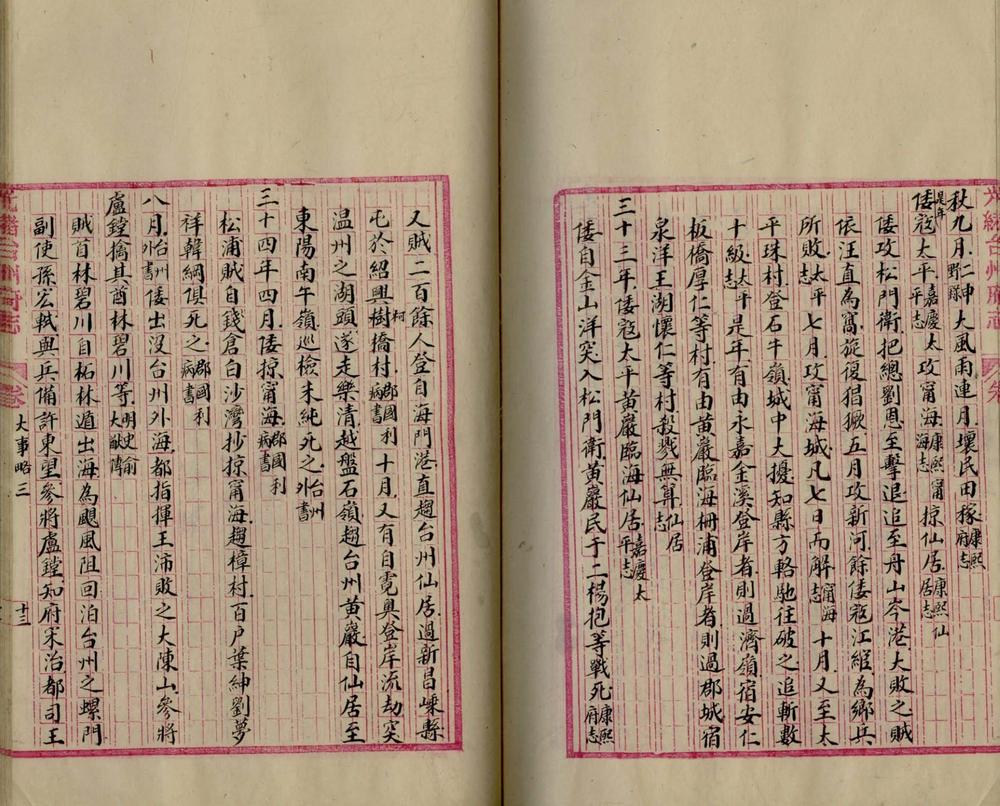 光緒台州府志
卷
秋九月壬申大風雨連月壞民田稼康熙府志
是年倭寇太平嘉慶太平志攻甯海康熙甯海志掠仙居康熙仙居志
倭攻松門衛把總劉恩至擊退追至舟山岑港大敗之賊
依汪直為窩旋復猖獗五月攻新河餘倭寇江綰為鄉兵
所敗太平志七月攻甯海城凡七日而解甯海志十月又至太
平珠村登石牛嶺城中大擾知縣方輅馳往破之追斬數
十級太平志是年有由永嘉金溪登岸者則過濟嶺宿安仁
板僑厚仁等村有由黃巖臨海柵浦登岸者則過郡城宿
泉洋王湖懷仁等村殺戮無算仙居志
三十三年倭寇太平黃巖臨海仙居嘉慶太平志
倭自金山洋突入松門衛黃巖民于二楊抱等戰死康熙府志
又賊二百餘人登自海門港直趨台州仙居過新昌嵊縣
屯於紹興柯樹橋村郡國利病書十月又有自霓奧登岸流劫突
温州之湖頭遂走樂清越盤石嶺趨台州黃巖自仙居至
東陽南午嶺巡檢朱純死之台州外書
三十四年四月倭掠甯海郡國利病書
松浦賊自錢倉白沙灣抄掠甯海趨樟村百户葉紳劉夢
祥韓綱俱死之郡國利病書
八月台州外書倭出沒台州外海都指揮王沛敗之大陳山參將
盧鏜擒其酋林碧川等明史俞大猷傳
賊首林碧川自柘林遁出海為颶風阻回泊台州之螺門
副使孫宏軾與兵備許東望參將盧鏜知府宋治都司王
光緒台州府志
卷
大事略三
十三